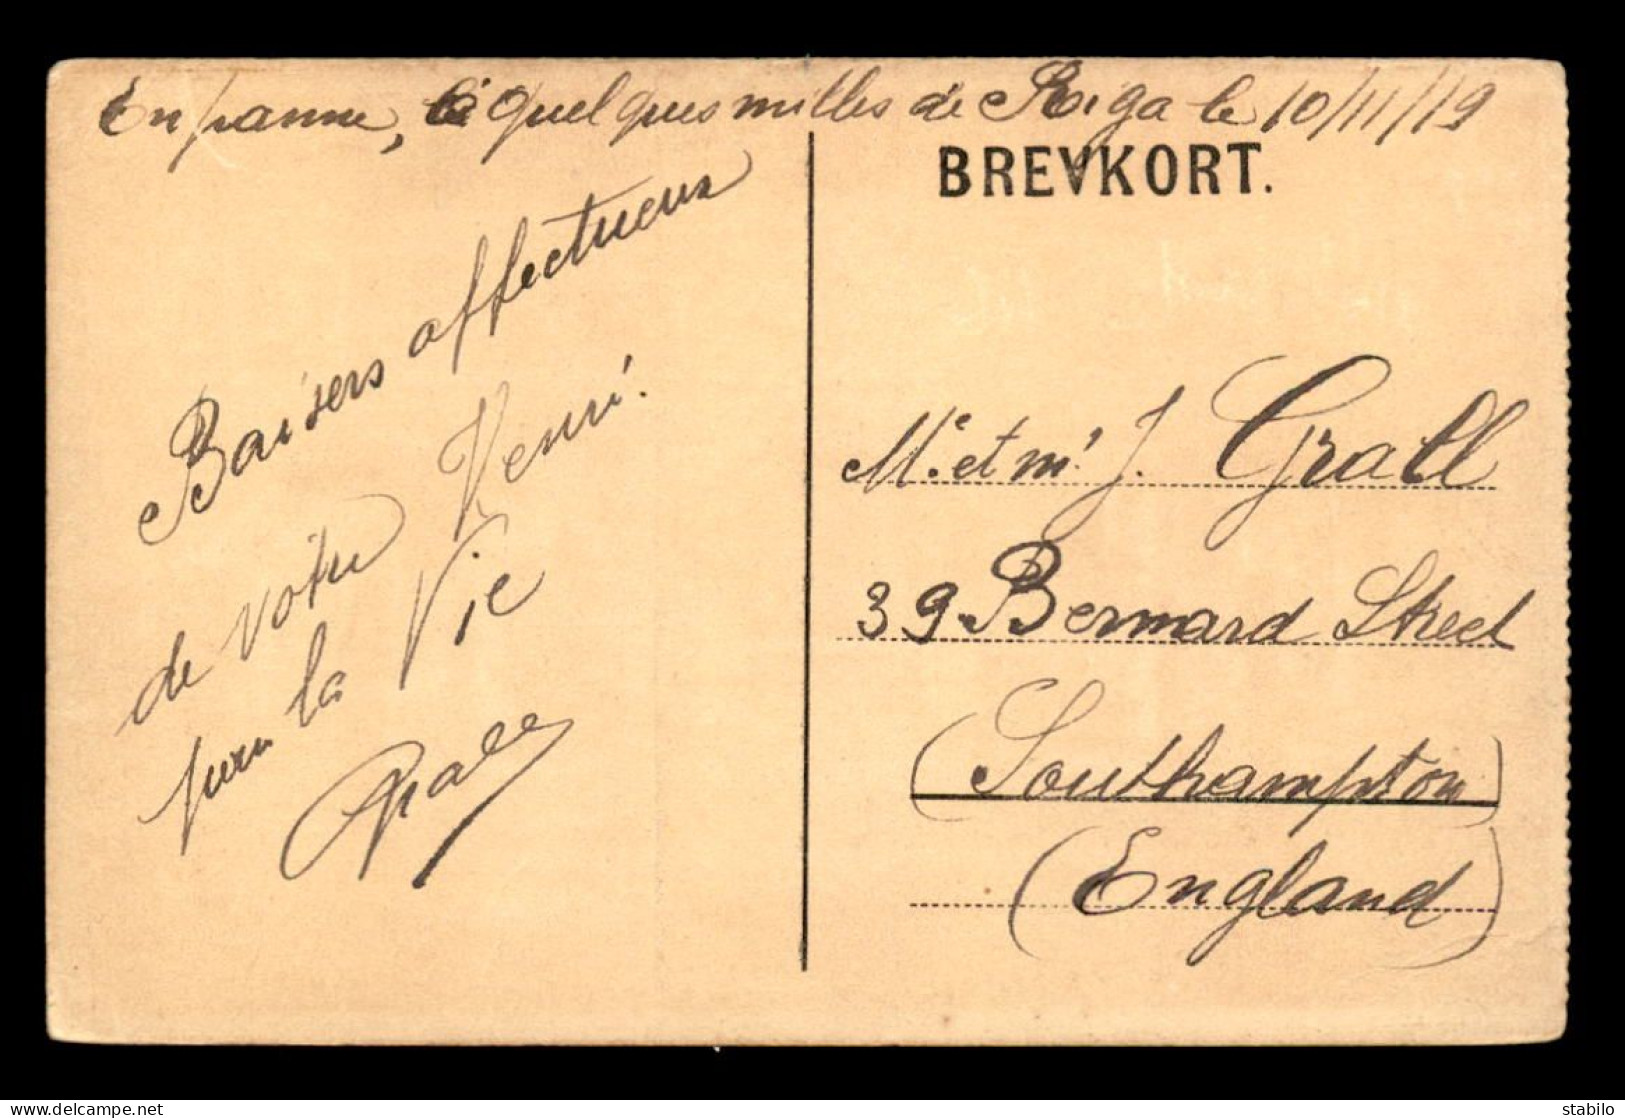 En panne, à quelques milles de Riga le 10/11/19
BREVKORT.
Baisers affectueux
de votre Henri.
pour la Vie
Mr. et me. J. Grall
39 Bernard Street
(Southampton)
(England)
https://www.delcampe.net
stabilo